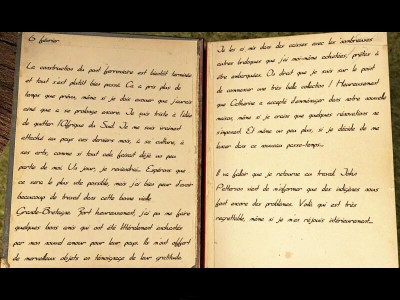 6 février
La construction du pont ferroviaire est bientôt terminée
et tout s'est plutôt bien passé. Ca a pris plus de
temps que prévu, même si je dois avouer que j'aurais
aimé que ça se prolonge encore. Je suis triste à l'idée
de quitter l'Afrique du Sud. Je me suis vraiment
attaché au pays ces derniers mois, à sa culture, à
ses arts, comme si tout cela faisait déjà un peu
partie de moi. Un jour, je reviendrai. Espérons que
ce sera le plus vite possible, mais j'ai bien peur d'avoir
beaucoup de travail dans cette bonne vieille
Grande-Bretagne. Fort heureusement, j'ai pu me faire
quelques bons amis qui ont été littéralement enchantés
par mon nouvel amour pour leur pays. Ils m'ont offert
de merveilleux objets en témoignage de leur gratitude.
Je les ai mis dans des caisses avec les nombreuses
autres breloques que j'ai moi-même achetées, prêtes à
être embarquées. On dirait que je suis sur le point
de commencer une très belle collection ! Heureusement
que Catherine a accepté d'emménager dans notre nouvelle
maison, même si je crains que quelques rénovations ne
s'imposent. Et même un peu plus, si je décide de me
lancer dans ce nouveau passe-temps...
Il va falloir que je retourne au travail. John
Patterson vient de m'informer que des indigènes nous
font encore des problèmes. Voilà qui est très
regrettable, même si je m'en réjouis intérieurement...